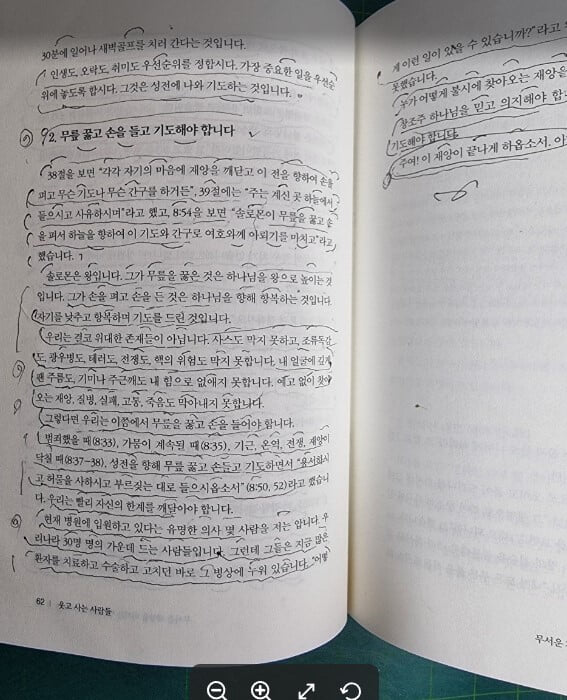 30분에 일어나 새벽골프를 치러 간다는 것입니다.
인생도, 오락도, 취미도 우선순위를 정합시다. 가장 중요한 일을 우선순
위에 놓도록 합시다. 그것은 성전에 나와 기도하는 것입니다.
2. 무릎 꿇고 손을 들고 기도해야 합니다
38절을 보면 "각각 자기의 마음에 재앙을 깨닫고 이 전을 향하여 손을
펴고 무슨 기도나 무슨 간구를 하거든", 39절에는 "주는 계신 곳 하늘에서
들으시고 사유하시며"라고 했고, 8:54을 보면 "솔로몬이 무릎을 꿇고 손
을 펴서 하늘을 향하여 이 기도와 간구로 여호와께 아뢰기를 마치고"라고
했습니다.
솔로몬은 왕입니다. 그가 무릎을 꿇은 것은 하나님을 왕으로 높이는 것
입니다. 그가 손을 펴고 손을 든 것은 하나님을 향해 항복하는 것입니다.
자기를 낮추고 항복하며 기도를 드린 것입니다.
우리는 결코 위대한 존재들이 아닙니다. 사스도 막지 못하고, 조류독감
도, 광우병도, 테러도, 전쟁도, 핵의 위험도 막지 못합니다. 내 얼굴에 깊게
팬 주름도, 기미나 주근깨도 내 힘으로 없애지 못합니다. 예고 없이 찾아
오는 재앙, 질병, 실패, 고통, 죽음도 막아내지 못합니다.
그렇다면 우리는 이쯤에서 무릎을 꿇고 손을 들어야 합니다.
범죄했을 때(8:33), 가뭄이 계속될 때(8:35), 기근, 온역, 전쟁, 재앙이
닥칠 때(8:37-38), 성전을 향해 무릎 꿇고 손들고 기도하면서 "용서하시
고, 허물을 사하시고 부르짖는 대로 들으시옵소서"(8:50, 52)라고 했습니
다. 우리는 빨리 자신의 한계를 깨달아야 합니다.
현재 병원에 입원하고 있다는 유명한 의사 몇 사람을 저는 압니다. 우
리나라 30명 명의 가운데 드는 사람들입니다. 그런데 그들은 지금 많은
환자를 치료하고 수술하고 고치던 바로 그 병상에 누워 있습니다. "어떻
62 웃고 사는 사람들
게 이런 일이 있을 수 있습니까?"라고
못했습니다.
누가 어떻게 불시에 찾아오는 재앙을
창조주 하나님을 믿고 의지해야 합
기도해야 합니다.
주여! 이 재앙이 끝나게 하옵소서.
무서운